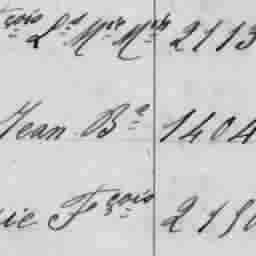 çois Ld Mie Mie 2113
Jean Bte 1404
ie Fçois 215